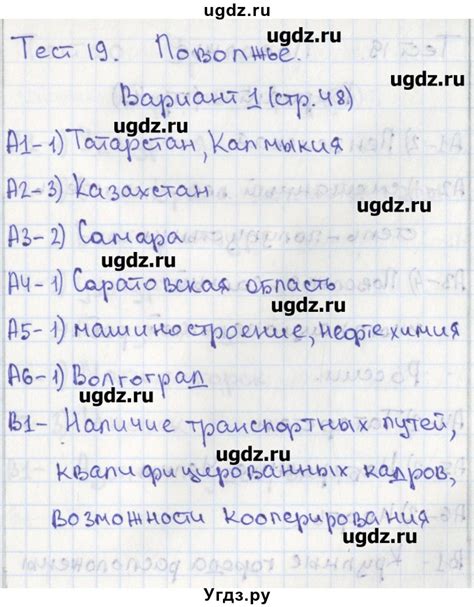 ugdz.ru
Тест 19. Поволжье.
ugdz.ru
Вариант 1 (стр. 48)
ugdz.ru
А1-1) Татарстан, Калмыкия
А2-3) Казахстан
ugdz.ru
А3-2) Самара
ugdz.ru
А4-1) Саратовская область
ugdz.ru
А5-1) машиностроение, нефтехимия
ugdz.ru
А6-1) Волгоград
ugdz.ru
В1- Наличие транспортных путей,
ugdz.ru
квалифицированных кадров,
ugdz.ru
возможности кооперирования
ugdz.ru
Угдз.ру